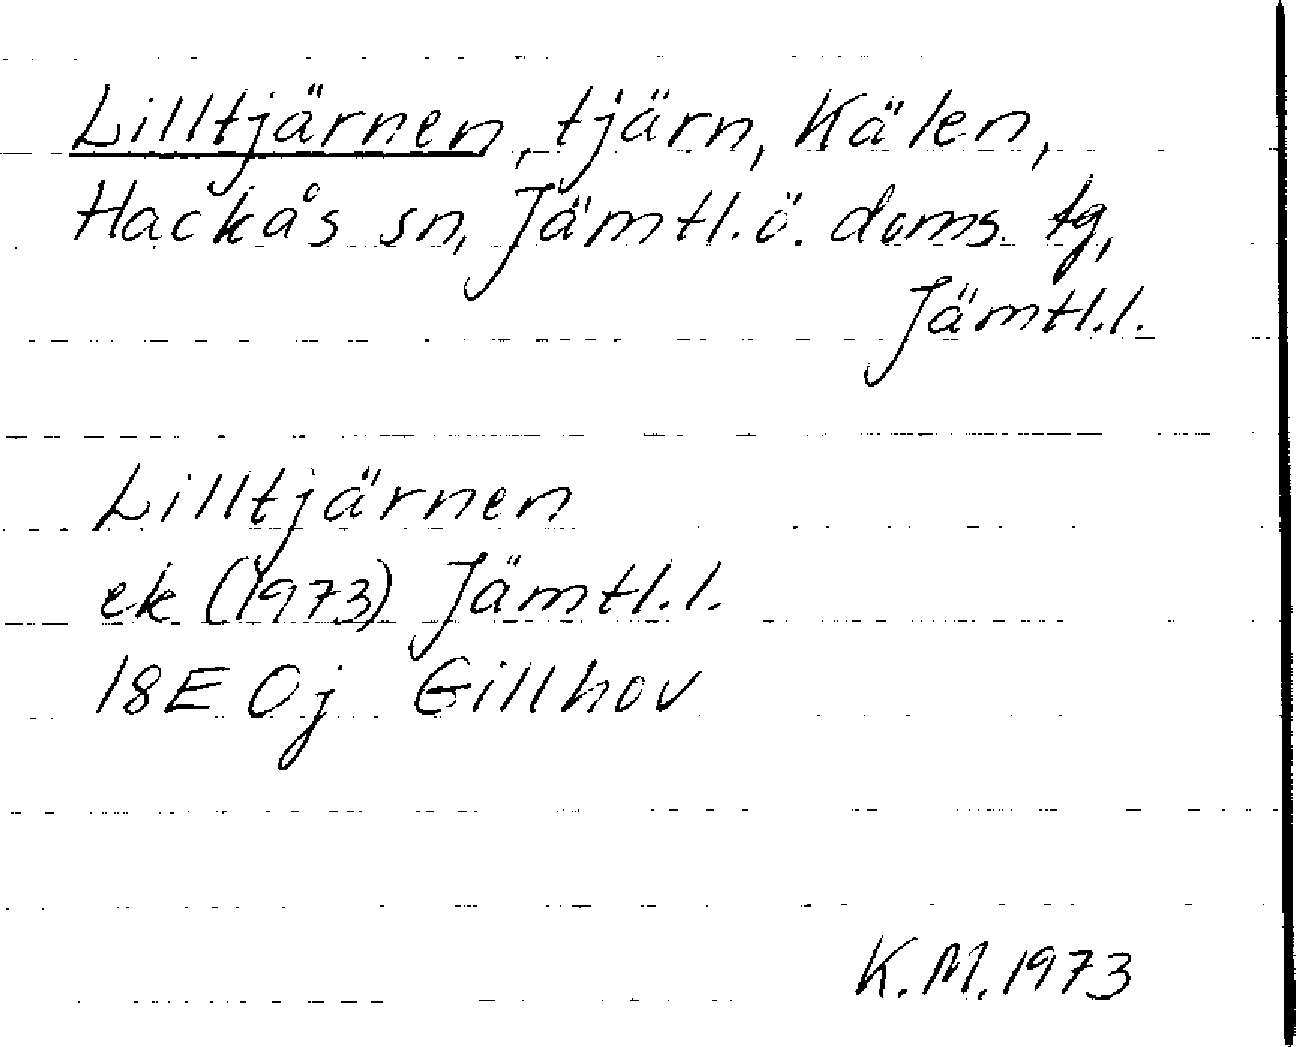 Lilltjärnen, tjärn, Kälen,
Hackås sn, Jämtl. ö. doms. tg,
Jämtl.l.
Lilltjärnen
ek (1973) Jämtl.l.
18E 0j Gillhov
K.M. 1973